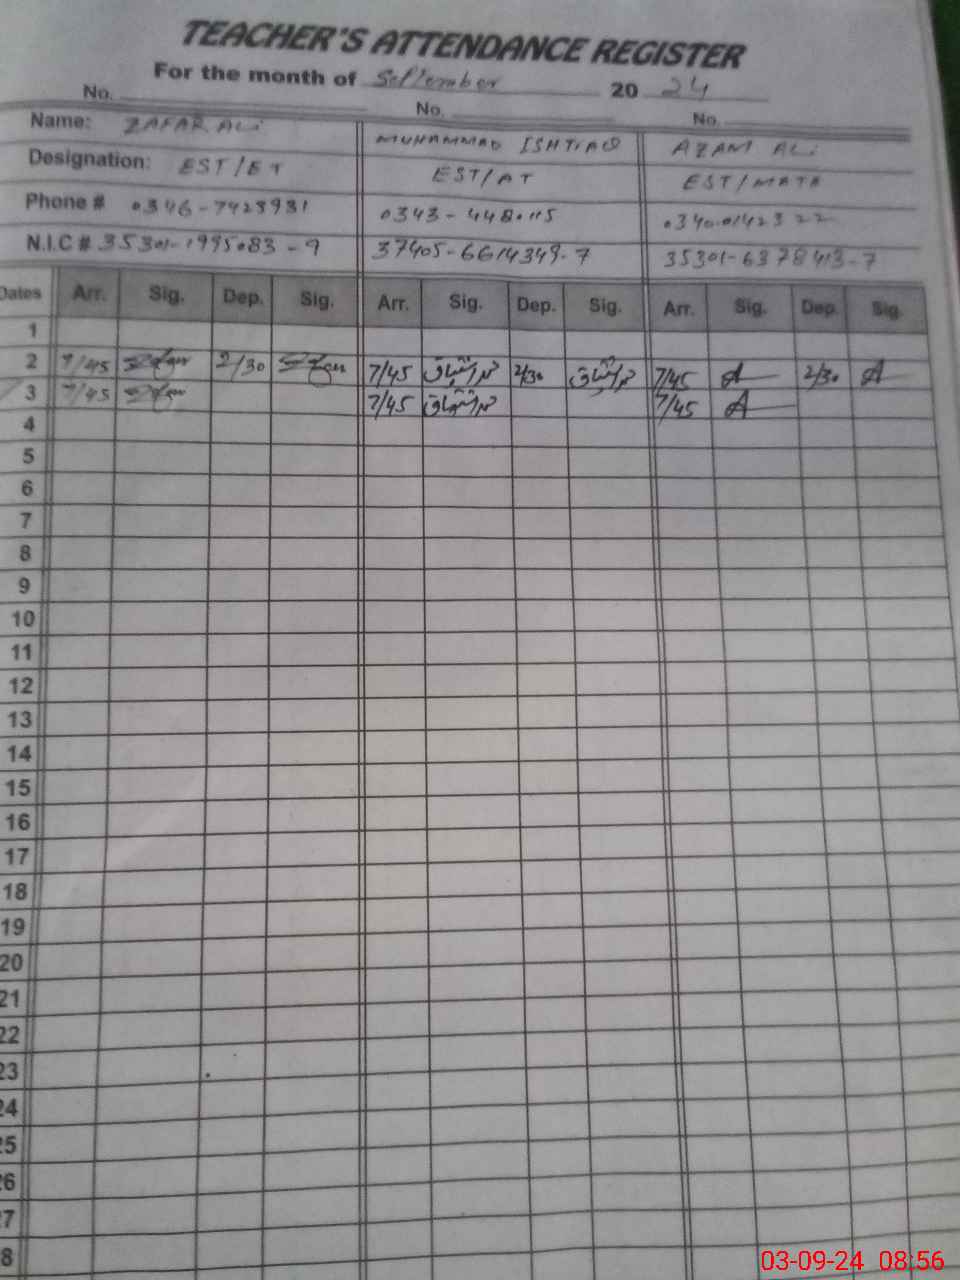 TEACHER'S ATTENDANCE REGISTER
For the month of September 20 24
No. No. No.
Name: ZAFAR ALi MUHAMMAD ISHTIAQ AZAM ALi
Designation: EST/ET EST/AT EST/MATH
Phone # 0346-7423931 0343-4480115 0340-0142322
N.I.C # 35301-1995083-9 37405-6614349-7 35301-6378413-7
Dates Arr. Sig. Dep. Sig. Arr. Sig. Dep. Sig. Arr. Sig. Dep. Sig.
1
2 7/45 2/30 7/45 محمد اشتیاق 2/30 محمد اشتیاق 7/45 A 2/30 A
3 7/45 7/45 محمد اشتیاق 7/45 A
4
5
6
7
8
9
10
11
12
13
14
15
16
17
18
19
20
21
22
23
24
25
26
27
28
03-09-24 08:56